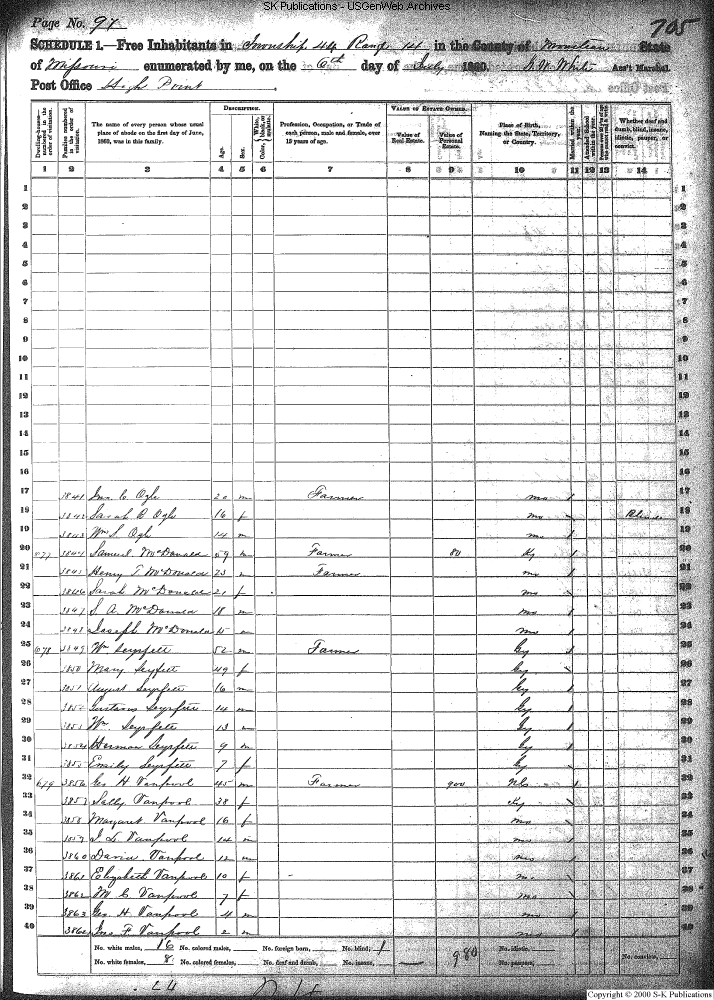 SK Publications - USGenWeb Archives
Page No. 97
705
SCHEDULE 1.—Free Inhabitants in Township 44 Rang 14 in the County of Moniteau State
of Missouri enumerated by me, on the 6th day of July 1860. White Ass't Marshal.
Post Office High Point
Dwelling-houses—numbered in the order of visitation.
Families numbered in the order of visitation.
The name of every person whose usual place of abode on the first day of June, 1860, was in this family.
DESCRIPTION.
Age.
Sex.
Color, White, black, or mulatto.
Profession, Occupation, or Trade of each person, male and female, over 15 years of age.
VALUE OF ESTATE OWNED.
Value of Real Estate.
Value of Personal Estate.
Place of Birth, Naming the State, Territory, or Country.
Married within the year.
Whether deaf and dumb, blind, insane, idiotic, pauper, or convict.
1 2 3 4 5 6 7 8 9 10 11 12 13 14
1 1
2 2
3 3
4 4
5 5
6 6
7 7
8 8
9 9
10 10
11 11
12 12
13 13
14 14
15 15
16 16
17 3841 Jno. C Ogle 20 m Farmer mo 17
18 3842 Sarah Ogle 16 f mo Blind 18
19 3843 Wm S. Ogle 14 m mo 19
20 677 3844 Samuel McDonald 59 m Farmer 80 Ky 20
21 3845 Henry T McDonald 23 m Farmer mo 21
22 3846 Sarah McDonald 21 f mo 22
23 3847 S. A. McDonald 18 m mo 23
24 3848 Joseph McDonald 15 m mo 24
25 678 3849 Wm Seyfrett 52 m Farmer Gy 25
26 3850 Mary Seyfrett 49 f Gy 26
27 3851 August Seyfrett 16 m Gy 27
28 3852 Gustavus Seyfrett 14 m Gy 28
29 3853 Wm Seyfrett 13 m Gy 29
30 3854 Herman Seyfrett 9 m Gy 30
31 3855 Emily Seyfrett 7 f Gy 31
32 679 3856 Geo H Vanpool 45 m Farmer 900 NC 32
33 3857 Sally Vanpool 38 f Ky 33
34 3858 Margaret Vanpool 16 f mo 34
35 3859 J. L. Vanpool 14 m mo 35
36 3860 David Vanpool 12 m mo 36
37 3861 Elizabeth Vanpool 10 f mo 37
38 3862 M C Vanpool 7 f mo 38
39 3863 Geo. H. Vanpool 4 m mo 39
40 3864 Jno F. Vanpool 2 m mo 40
No. white males, 16 No. colored males, No. foreign born, No. blind, 1 980 No. idiotic,
No. white females, 8 No. colored females, No. deaf and dumb, No. insane, No. paupers, No. convicts,
24
Copyright © 2000 S-K Publications